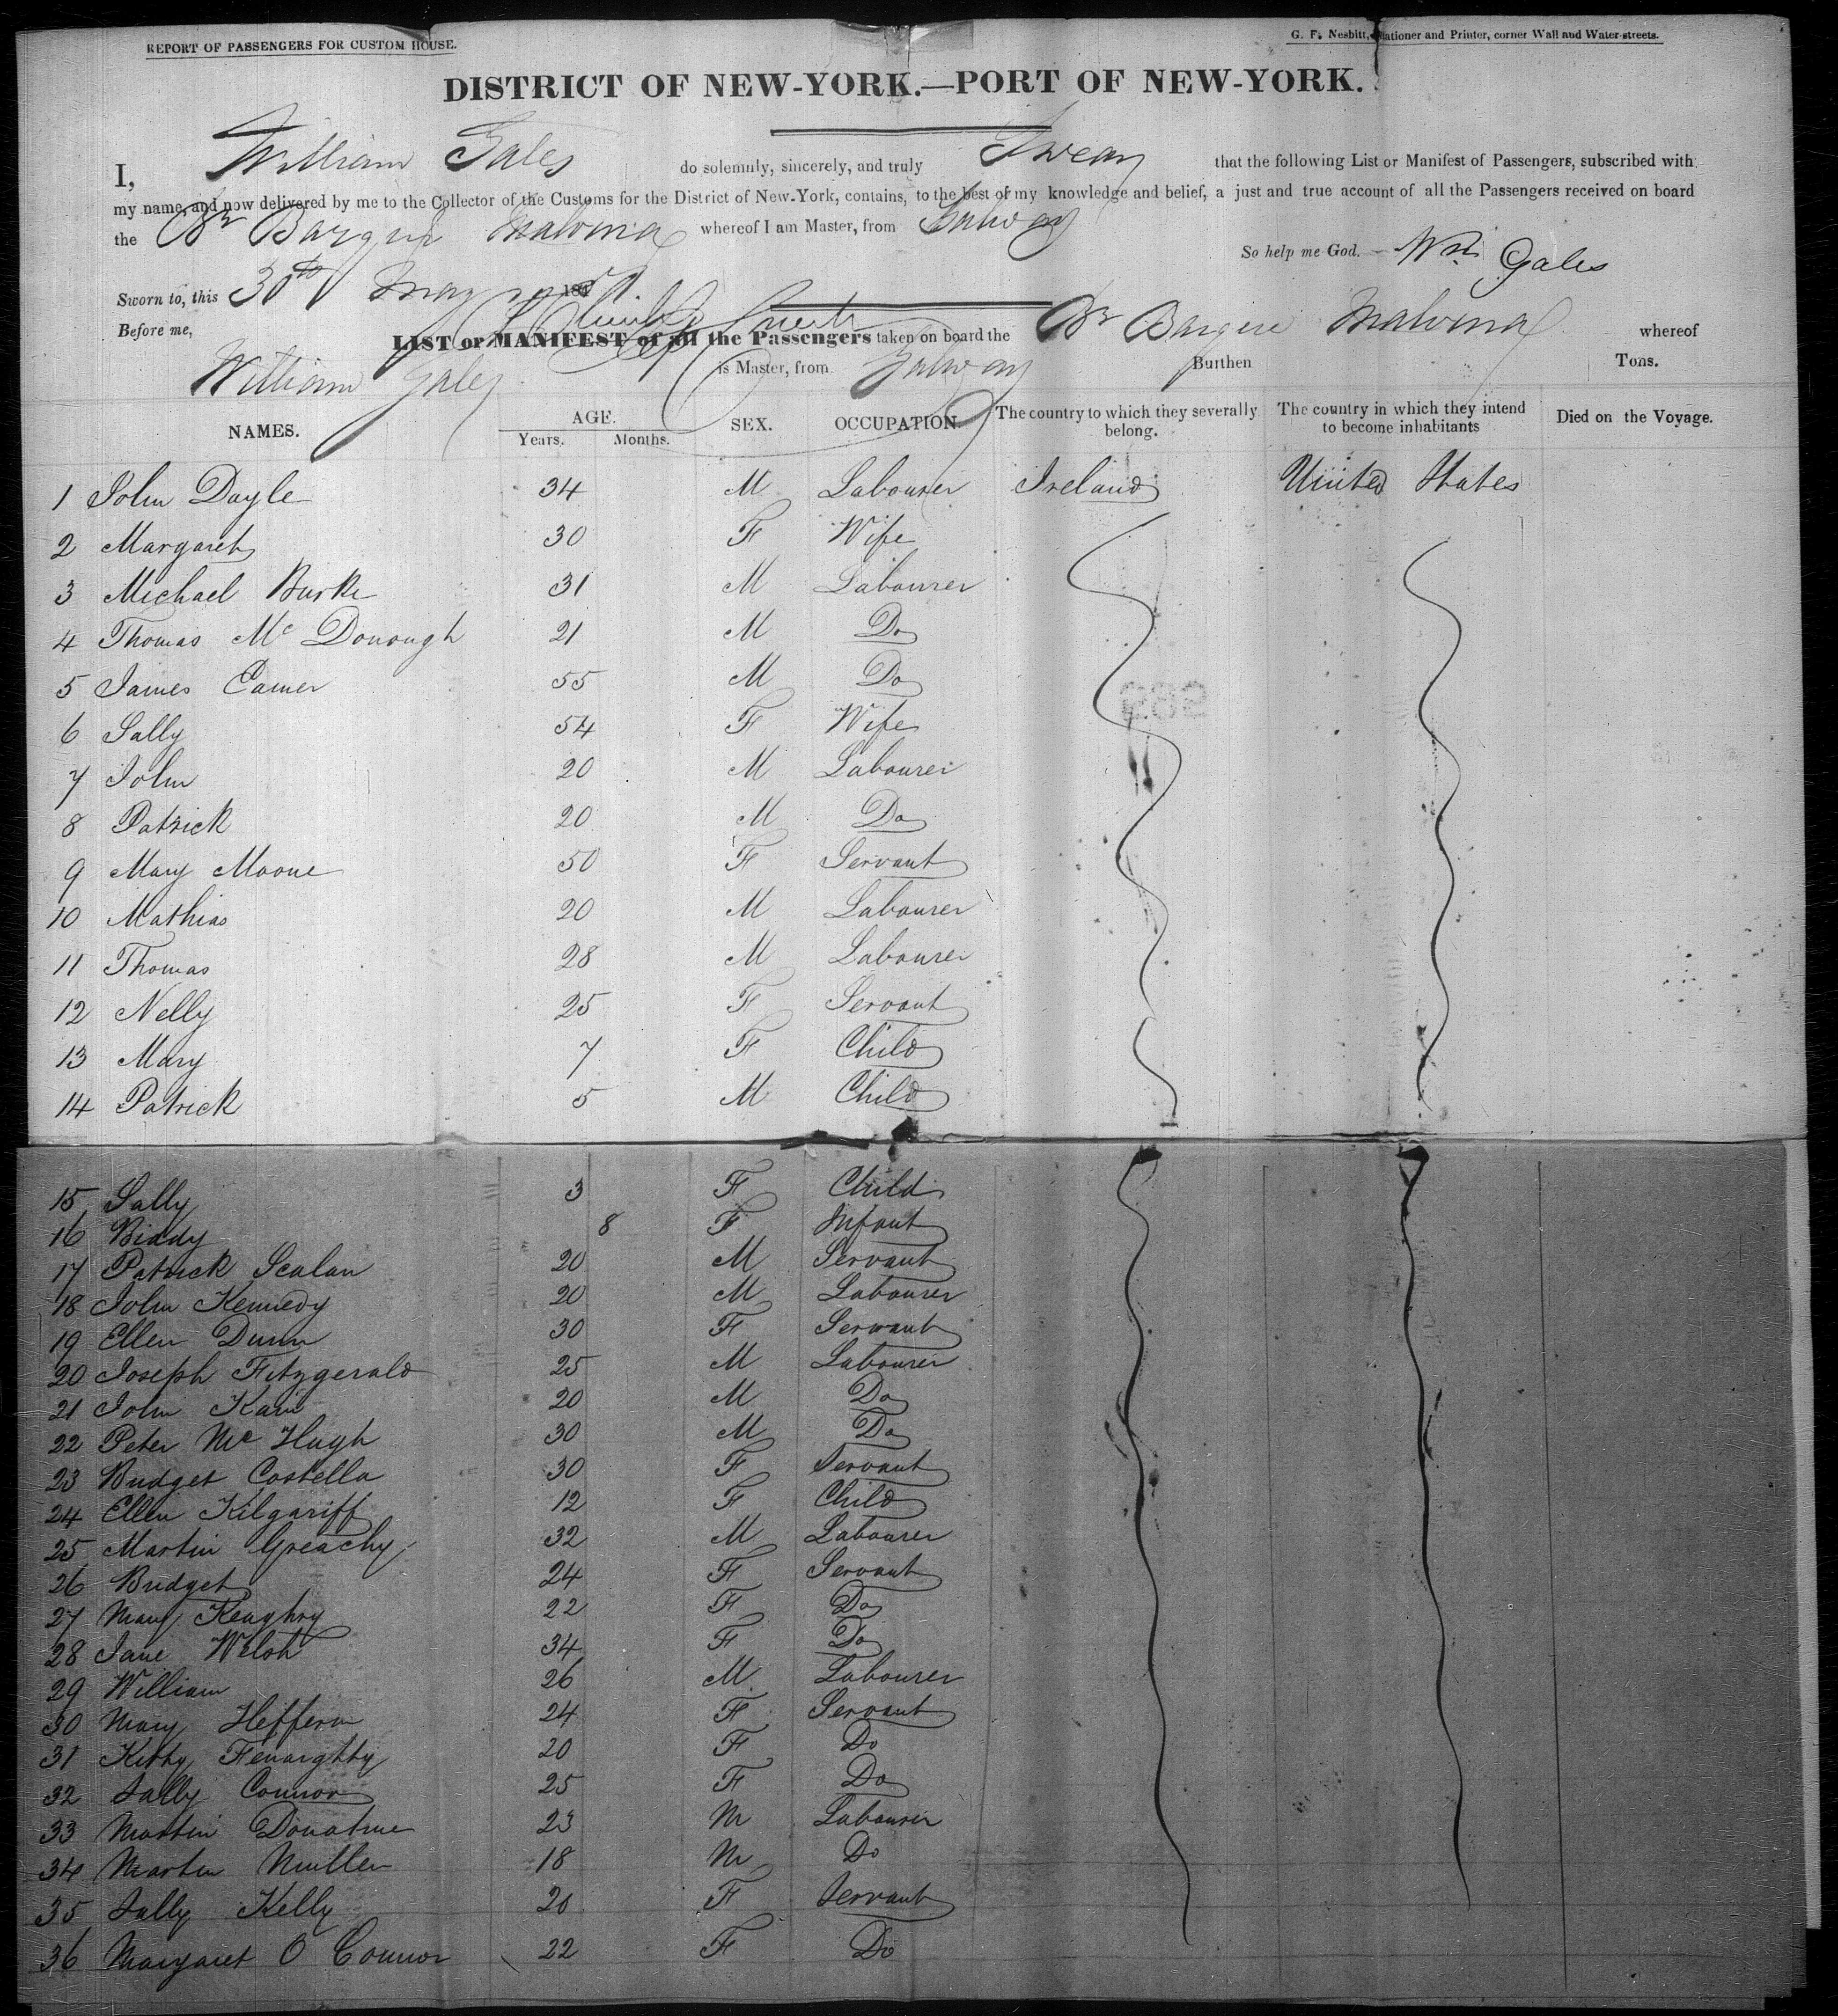 REPORT OF PASSENGERS FOR CUSTOM HOUSE.
G. F. Nesbitt, Stationer and Printer, corner Wall and Water-streets.
DISTRICT OF NEW-YORK.—PORT OF NEW-YORK.
I, William Gales do solemnly, sincerely, and truly Swear that the following List or Manifest of Passengers, subscribed with
my name and now delivered by me to the Collector of the Customs for the District of New-York, contains, to the best of my knowledge and belief, a just and true account of all the Passengers received on board
the Br Barque Malvina whereof I am Master, from Galway
So help me God. Wm Gales
Sworn to, this 30th May 18
Before me,
LIST or MANIFEST of all the Passengers taken on board the Br Barque Malvina whereof
William Gales is Master, from Galway Burthen Tons.
NAMES. AGE. Years. Months. SEX. OCCUPATION. The country to which they severally belong. The country in which they intend to become inhabitants Died on the Voyage.
1 John Doyle 34 M Labourer Ireland United States
2 Margaret 30 F Wife
3 Michael Burke 31 M Labourer
4 Thomas Mc Donough 21 M Do
5 James Eamer 55 M Do
6 Sally 54 F Wife
7 John 20 M Labourer
8 Patrick 20 M Do
9 Mary Moone 50 F Servant
10 Mathias 20 M Labourer
11 Thomas 28 M Labourer
12 Nelly 25 F Servant
13 Mary 7 F Child
14 Patrick 5 M Child
15 Sally 3 F Child
16 Biddy 8 F Infant
17 Patrick Scalan 20 M Servant
18 John Kennedy 20 M Labourer
19 Ellen Dunn 30 F Servant
20 Joseph Fitzgerald 25 M Labourer
21 John Kain 20 M Do
22 Peter Mc Hugh 30 M Do
23 Bridget Costella 30 F Servant
24 Ellen Kilgariff 12 F Child
25 Martin Greachy 32 M Labourer
26 Bridget 24 F Servant
27 Mary Keaghry 22 F Do
28 Jane Welsh 34 F Do
29 William 26 M Labourer
30 Mary Heffern 24 F Servant
31 Kitty Fenarghty 20 F Do
32 Sally Connor 25 F Do
33 Martin Donahue 23 M Labourer
34 Martin Mullen 18 M Do
35 Sally Kelly 20 F Servant
36 Margaret O Connor 22 F Do